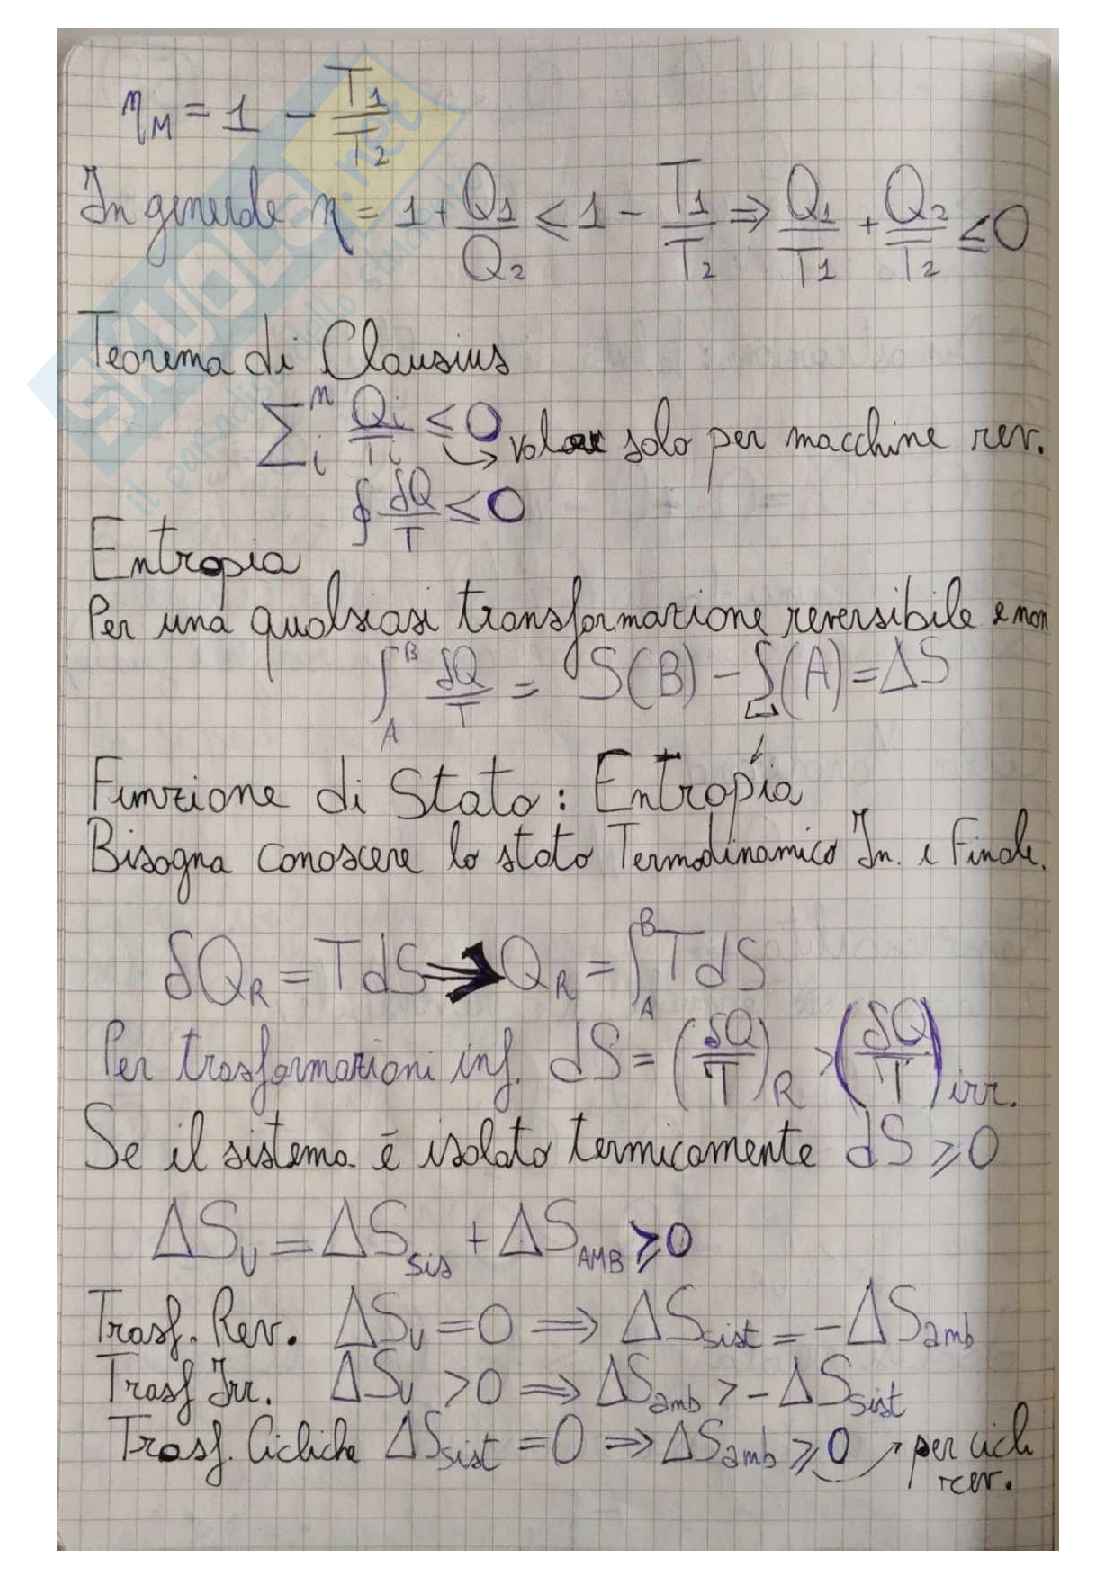 η_M = 1 - T_1/T_2
In generale η = 1 + Q_1/Q_2 ≤ 1 - T_1/T_2 ⇒ Q_1/T_1 + Q_2/T_2 ≤ 0
Teorema di Clausius
∑_i^n Q_i/T_i ≤ 0 → solo per macchine rev.
∮ δQ/T ≤ 0
Entropia
Per una qualsiasi transformazione reversibile e non
∫_A^B δQ/T = S(B) - S(A) = ΔS
↓
Funzione di Stato: Entropia
Bisogna conoscere lo stato Termodinamico In. e Finale.
δQ_R = TdS → Q_R = ∫_A^B TdS
Per trasformazioni inf. dS = (δQ/T)_R > (δQ/T)_irr.
Se il sistema é isolato termicamente dS ≥ 0
ΔS_U = ΔS_sis + ΔS_AMB ≥ 0
Trasf. Rev. ΔS_U = 0 ⇒ ΔS_sist = -ΔS_amb
Trasf Irr. ΔS_U > 0 ⇒ ΔS_amb > -ΔS_sist
Trasf. Cicliche ΔS_sist = 0 ⇒ ΔS_amb ≥ 0 → per cicli
rev.
SKUOLA.net